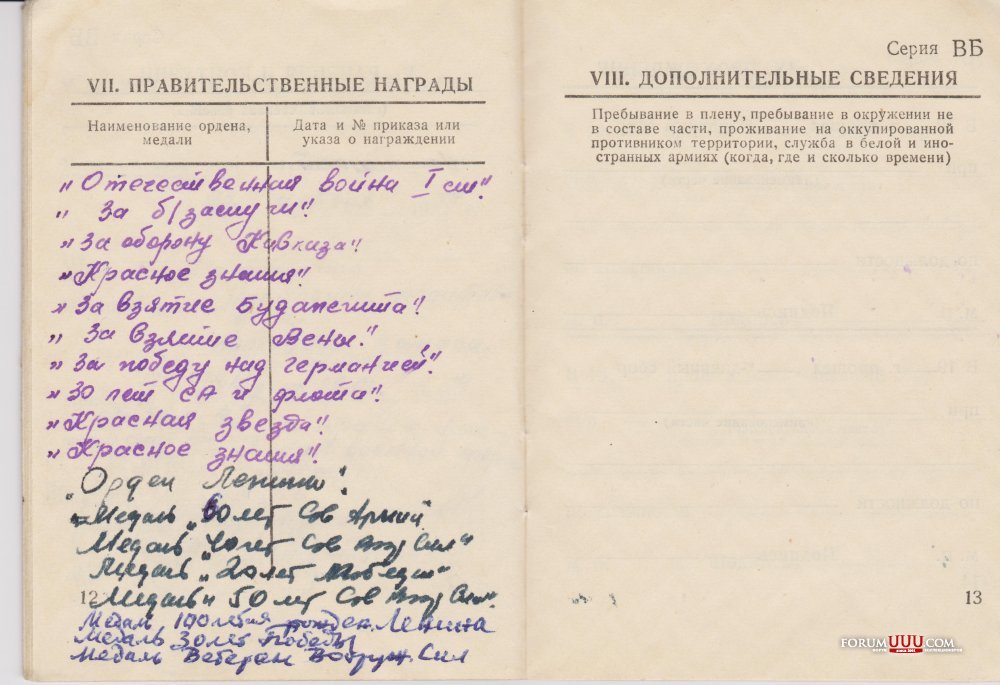 VII. ПРАВИТЕЛЬСТВЕННЫЕ НАГРАДЫ
Наименование ордена,
медали
Дата и № приказа или
указа о награждении
"Отечественная война I ст".
" За б/заслуги".
"За оборону Кавказа".
"Красное знамя".
"За взятие Будапешта".
" За взятие Вены".
"За победу над германией".
"30 лет СА и флота".
"Красная звезда".
"Красное знамя".
"Орден Ленина".
Медаль "60 лет Сов Армии
Медаль "40 лет Сов Воор Сил"
Медаль "20 лет Победы"
12
Медаль " 50 лет Сов Воор Сил".
Медаль 100 летия рожден. Ленина
Медаль 30 лет Победы
Медаль Ветеран Вооруж. Сил
Серия ВБ
VIII. ДОПОЛНИТЕЛЬНЫЕ СВЕДЕНИЯ
Пребывание в плену, пребывание в окружении не
в составе части, проживание на оккупированной
противником территории, служба в белой и ино-
странных армиях (когда, где и сколько времени)
13
FORUMUUU.COM